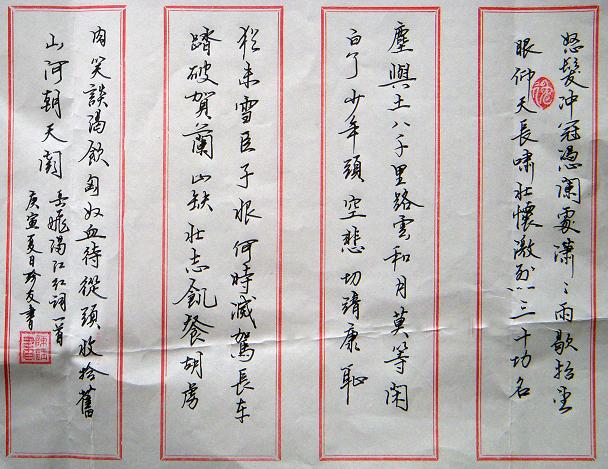 怒髮冲冠憑闌處瀟〻雨歇抬望
眼仰天長嘯壯懷激烈三十功名
塵與土八千里路雲和月莫等閑
白了少年頭空悲切靖康恥
猶未雪臣子恨何時滅駕長车
踏破賀蘭山缺壯志飢餐胡虜
肉笑談渴飲匈奴血待從頭收拾舊
山河朝天闕
岳飛滿江紅詞一首
庚寅夏日珍友書